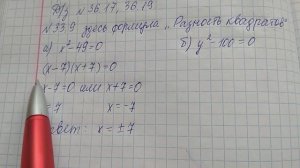 Д/з N 36.17, 36.19
N 33.9 здесь формула „Разность квадратов"
а) x²-49=0 б) y²-100=0
(x-7)(x+7)=0
x-7=0 или x+7=0
=7 x=-7
вет: x=±7